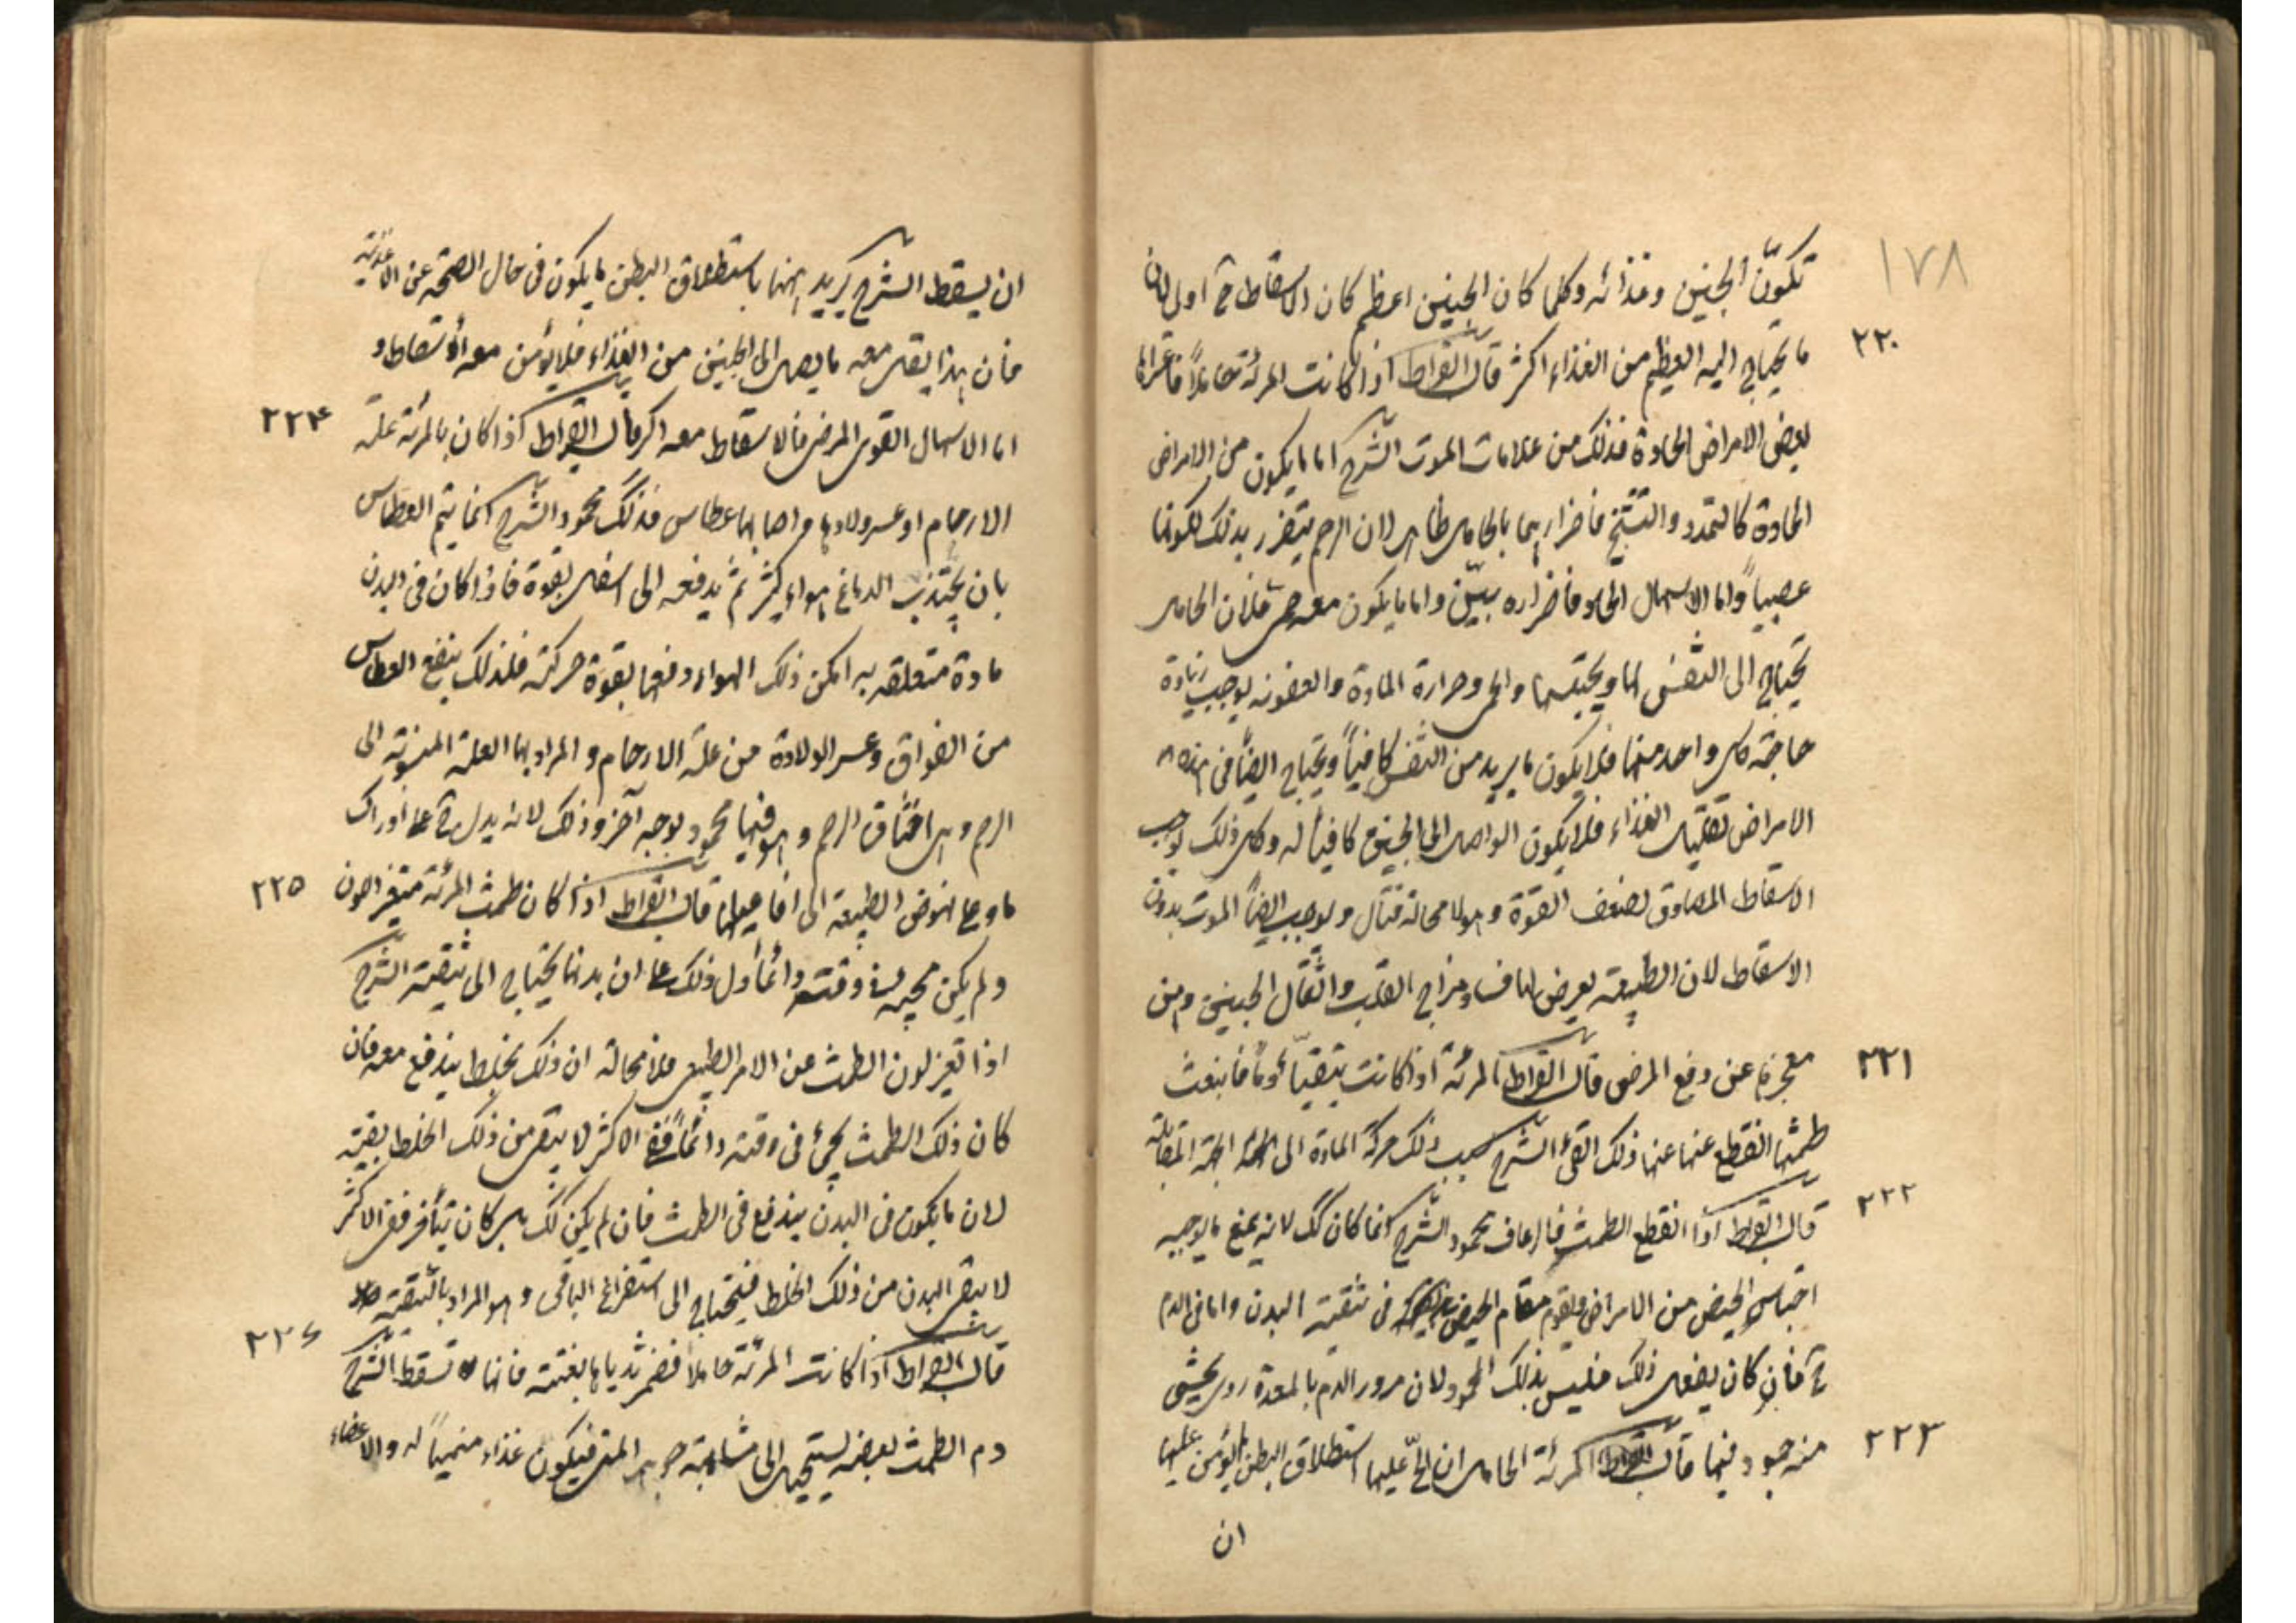 ١٧٨
تكوّن الجنين وغذائه وكلما كان الجنين اعظم كان الاسقاط ح اولى لان
٢٢٠
ما يحتاج اليه العظيم من الغذاء اكثر قال ابقراط اذا كانت المرئة حاملاً فاعتراها
بعض الامراض الحادة فذلك من علامات الموت الشرح اما ما يكون من الامراض
الحادة كالتمدد والتشنج فاضرارهما بالحامل ظاهر لان الرحم يتضرر بذلك لكونها
عصبياً واما الاسهال الحاد فاضراره بيّن واما ما يكون معه حمى فلان الحامل
تحتاج الى التنفس لها ولجنينها والحمى وحرارة المادة والعفونه يوجب زيادة
حاجة كل واحد منهما فلا يكون ما يريد من النفس كافياً ويحتاج ايضاً في هذه
الامراض تقليل الغذاء فلا يكون الواصل الى الجنين كافياً له وكل ذلك يوجب
الاسقاط المصادق لضعف القوة وهو لا محالة قتال ويوجب ايضاً الموت بدون
الاسقاط لان الطبيعة يعرض لها فساد مزاج القلب واثقال الجنين ومن
٢٢١
معجزها عن دفع المرض قال ابقراط المرئة اذا كانت يتقيأ دماً فانبعث
طمثها انقطع عنها عنها ذلك القئ الشرح سبب ذلك حركة المادة الى الجهة المقابلة
٢٢٢
قال ابقراط اذا انقطع الطمث فالرعاف محمود الشرح انما كان كك لانه يمنع ما يوجبه
احتباس الحيض من الامراض ويقوم مقام الحيض في تنقية البدن واما في الدم
ح فان كان يفعل ذلك فليس بذلك المحمود لان مرور الدم بالمعدة ردى يخشى
٢٢٣
منه جمود فيها قال ابقراط المرئة الحامل ان الحّ عليها استطلاق البطن لم يؤمن عليها
ان
ان يسقط الشرح يريد ههنا باستطلاق البطن ما يكون في حال الصحة عن الاغذية
فان هذا يقل معه ما يصل الى الجنين من الغذاء فلا يؤمن معه الاسقاط و
٢٢٤
اما الاسهال القوى المرضى فالاسقاط معه اكثر قال ابقراط اذا كان بالمرئة علة
الارحام او عسر ولادها واصابها عطاس فذلك محمود الشرح انما يتم العطاس
بان يجتذب الدماغ هواء كثير ثم يدفعه الى اسفل بقوة فاذا كان في البدن
مادة متعلقه به امكن ذلك الهواء دفعها بقوة حركته فلذلك ينفع العطاس
من الفواق وعسر الولادة من علة الارحام والمراد بها العلة المنسوبة الى
الرحم وهى اختناق الرحم وهو فيها محمود بوجه آخر وذلك لانه يدل ح على ادراك
٢٢٥
ما وعلى نهوض الطبيعة الى افاعيلها قال ابقراط اذا كان طمث المرئة متغير اللون
ولم يكن مجيئه في وقته دائماً دل ذلك على ان بدنها يحتاج الى تنقية الشرح
اذا تغير لون الطمث عن الامر الطبيعى فلا محالة ان ذلك لخلط يندفع معه فان
كان ذلك الطمث يجئ في وقته دائماً ففى الاكثر لا يبقى من ذلك الخلط بقية
لان ما يكون في البدن يندفع في الطمث فان لم يكن كك بل كان يتأخر ففى الاكثر
لا ينقى البدن من ذلك الخلط فيحتاج الى استفراغ الباقى وهو المراد بالتنقية
٢٢٦
قال ابقراط اذا كانت المرئة حاملاً فضمر ثدياها بغتة فانها تسقط الشرح
دم الطمث بعضه يستحيل الى مشابهة جوهر المنى فيكون غذاء منمياً له والاعضاء